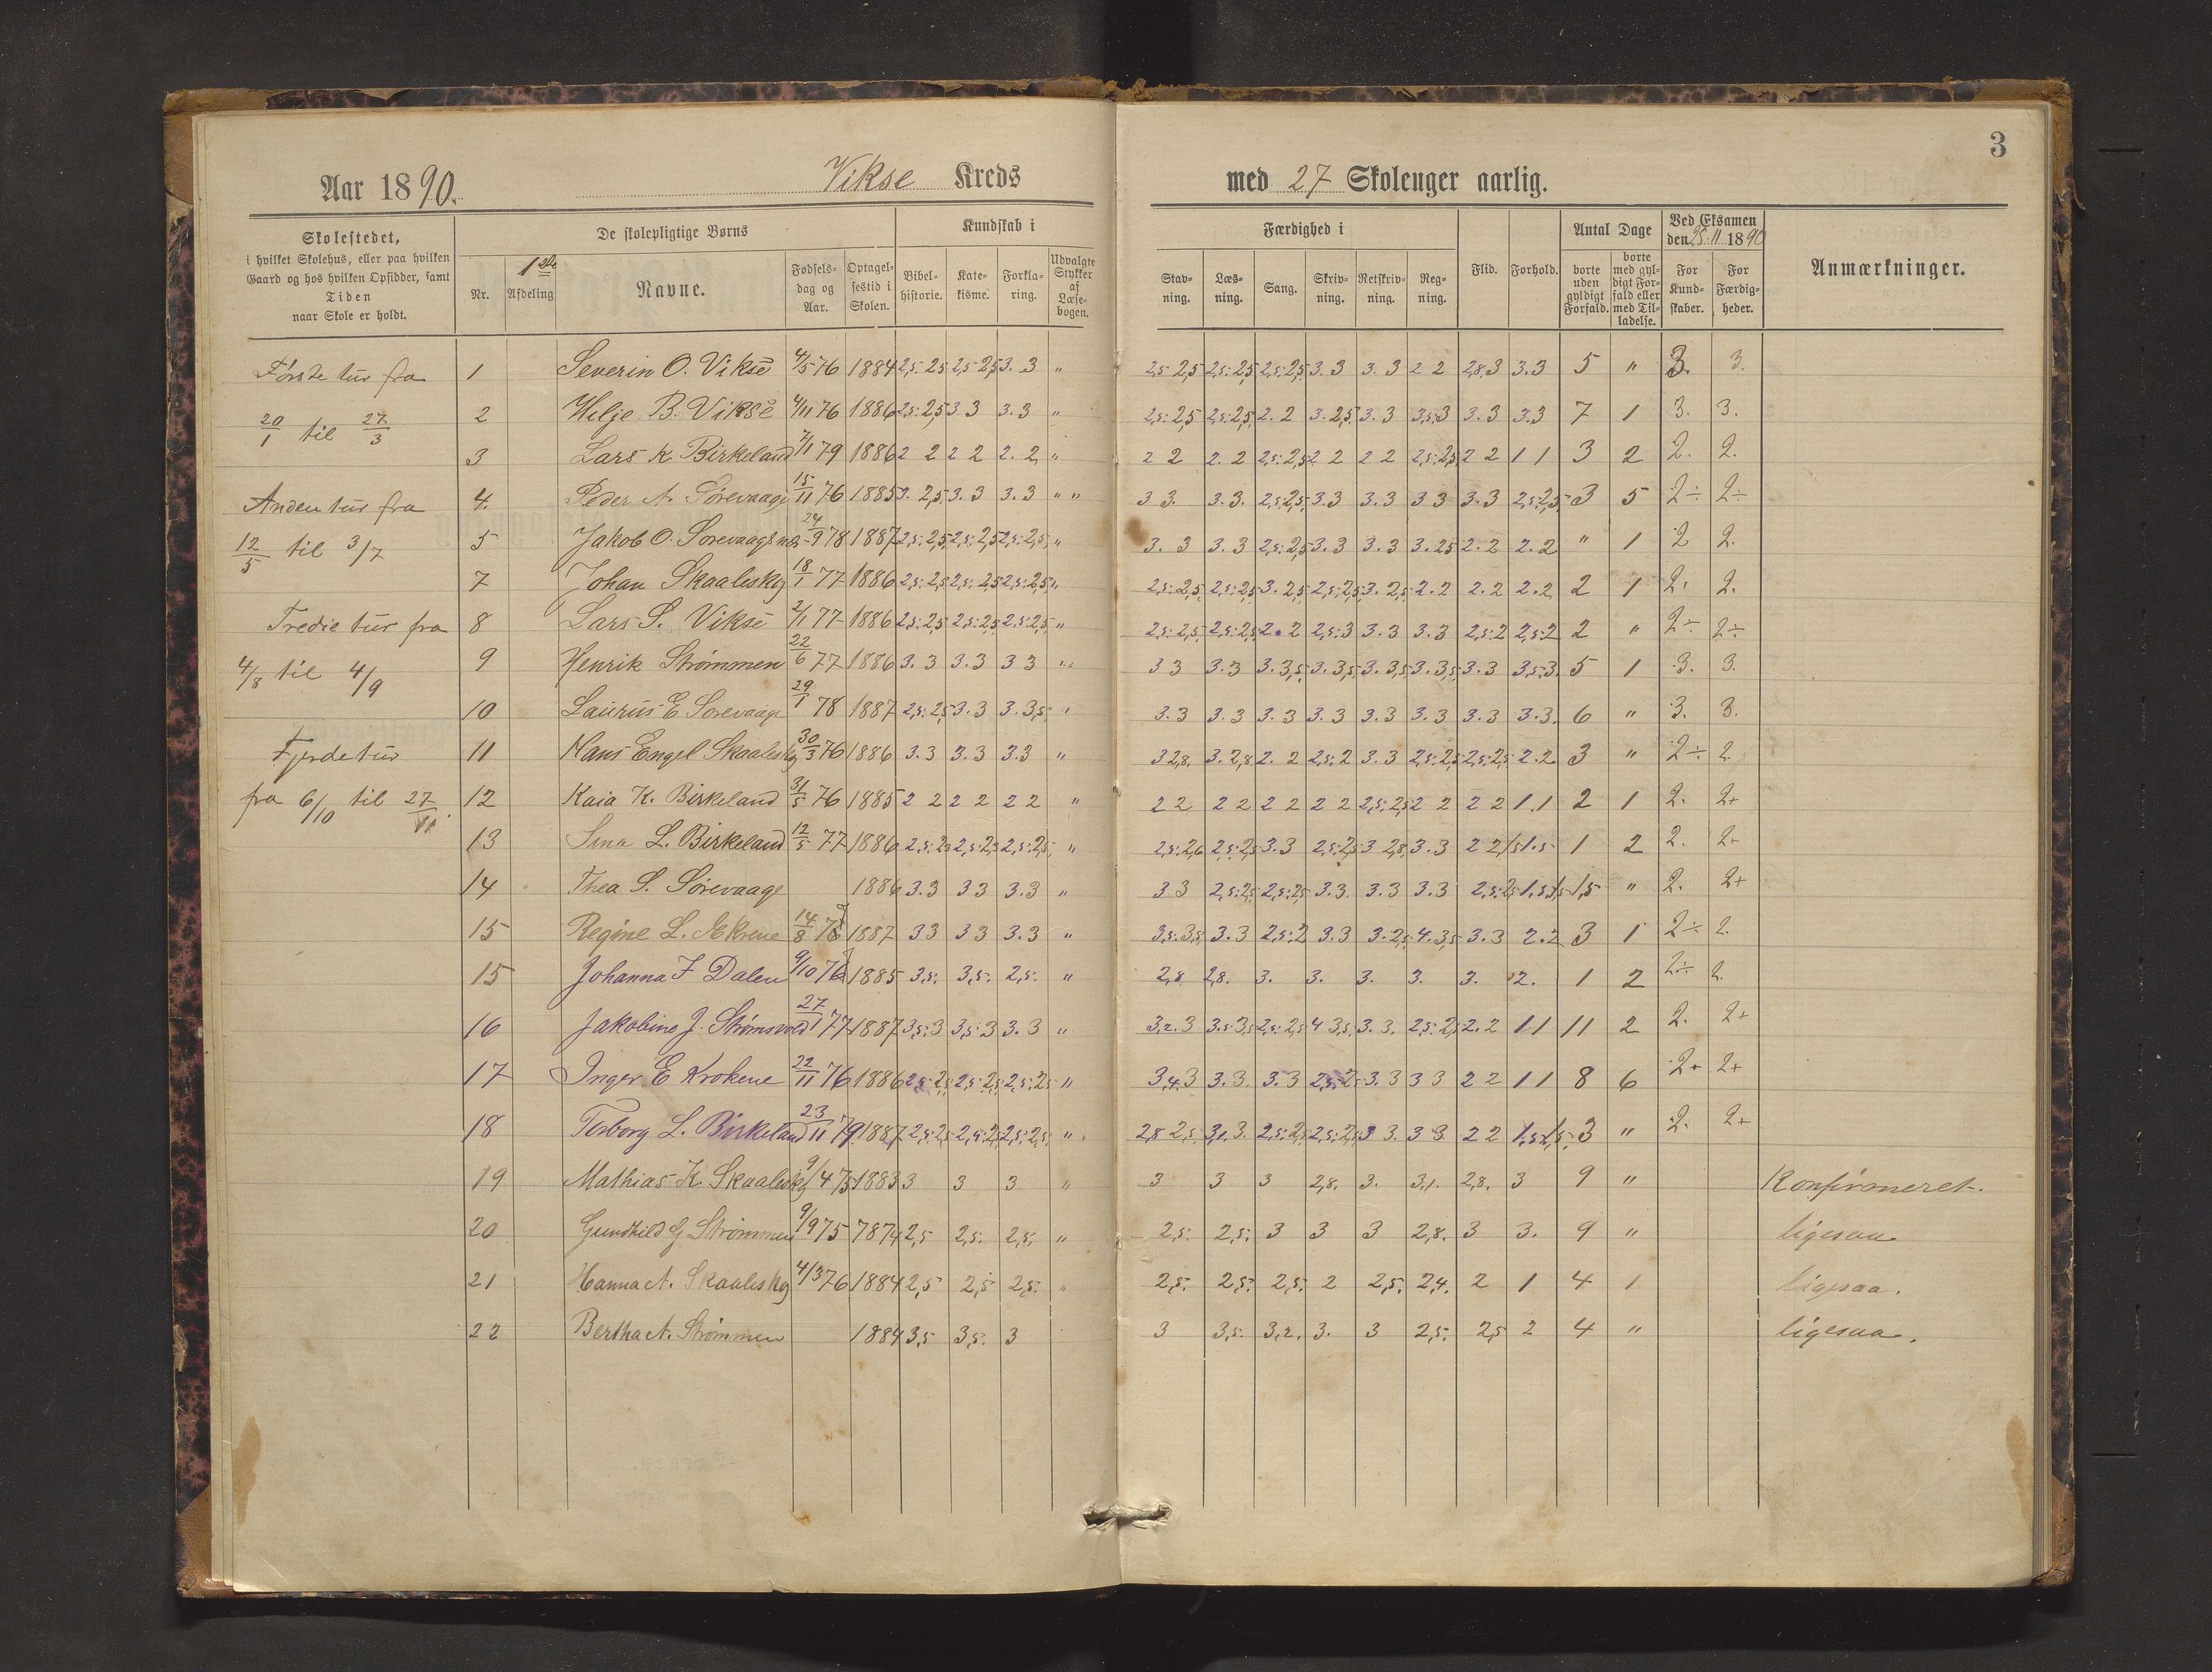 3
Aar 1890. Vikse Kreds med 27 Skoleuger aarlig.
Skolestedet,
i hvilket Skolehus, eller paa hvilken
Gaard og hos hvilken Opsidder, samt
Tiden
naar Skole er holdt.
De skolepligtige Børns
Nr.
1ste
Afdeling
Navne.
Fødsels-
dag og
Aar.
Optagel-
sestid i
Skolen.
Kundskab i
Bibel-
historie.
Kate-
kisme.
Forkla-
ring.
Udvalgte
Stykker
af
Læse-
bogen.
Færdighed i
Stav-
ning.
Læs-
ning.
Sang.
Skriv-
ning.
Retskriv-
ning.
Reg-
ning.
Flid.
Forhold.
Antal Dage
borte
uden
gyldigt
Forfald.
borte
med gyl-
digt For-
fald eller
med Til-
ladelse.
Ved Eksamen
den 25.11.1890
For
Kund-
skaber.
For
Færdig-
heder.
Anmærkninger.
Første tur fra
20/1 til 27/3
Anden tur fra
12/5 til 3/7
Tredie tur fra
4/8 til 4/9
Fjerde tur
fra 6/10 til 27/11.
1 Severin O. Vikse 4/5 76 1884 2,5. 2,5 2,5. 2,5 3. 3 " 2,5. 2,5 2,5. 2,5 2,5. 2,5 3. 3 3. 3 2 2 2,8. 3 3.3 5 " 3. 3.
2 Helje B. Vikse 4/11 76 1886 2,5. 2,5 3. 3 3. 3 " 2,5. 2,5 2,5. 2,5 2. 2 3. 2,5 3. 3 3,5. 3 3. 3 3.3 7 1 3. 3.
3 Lars K. Birkeland 7/11 79 1886 2 2 2 2 2. 2 " 2 2 2. 2 2,5. 2,5 2 2 2 2 2,5. 2,5 2 2 1 1 3 2 2. 2.
4. Peder A. Sørevaage 15/11 76 1885 3. 2,5 3. 3 3. 3 " " 3 3. 3. 3. 2,5. 2,5 3. 3 3. 3 3 3 3. 3 2,5. 2,5 3 5 2÷ 2÷
5 Jakob O. Sorevaagsnes 24/9 78 1887 2,5. 2,5 2,5. 2,5 2,5. 2,5 " 3. 3 3. 3 2,5. 2,5 3. 3 3. 3 3. 2,5 2. 2 2. 2 " 1 2 2.
7 Johan Skaaleskg 18/1 77 1886 2,5. 2,5 2,5. 2,5 2,5. 2,5 " 2,5. 2,5 2,5. 2,5 3. 2,5 2,5. 2,5 3. 2,5 2. 2 2. 2 2. 2 2 1 2. 2.
8 Lars S. Vikse 2/1 77 1886 2,5. 2,5 2,5. 2,5 2,5. 2,5 " 2,5. 2,5 2,5. 2,5 2. 2 2,5. 3 3. 3 3. 3 2,5. 2 2,5. 2 2 " 2÷ 2÷
9 Henrik Strømmen 22/6 77 1886 3. 3 3. 3 3 3 " 3 3 3. 3 3. 3,5 3. 3,5 3. 3,5 3. 3,5 3. 3 3,5. 3. 5 1 3. 3.
10 Laurits E Sorevaage 29/1 78 1887 2,5. 2,5 3. 3 3. 3,5 " 3. 3 3. 3 3. 3 3. 3 3. 3 3. 3 3. 3 3. 3. 6 " 3. 3.
11 Hans Engel Skaaleskg 30/3 76 1886 3. 3 3. 3 3. 3 " 3 2,8. 3. 2,8 2. 2 2,5. 2 3. 3 2,5. 2,5 2,5. 2,5 2. 2 3 " 2÷ 2.
12 Kaia K. Birkeland 31/5 76 1885 2 2 2 2 2 2 " 2 2 2 2 2 2 2 2 2,5. 2,5 2 2 2 2 1. 1 2 1 2. 2+
13 Sina L. Birkeland 12/5 77 1886 2,5. 2,5 2,5. 2,5 2,5. 2,5 " 2,5. 2,6 2,5. 2,5 3. 3 2,5. 2,5 3 2,8 3. 3 2 2 1,5 1,5 1 2 2. 2+
14 Thea S. Sörevaage 1886 3. 3 3 3 3. 3 " 3 3 2,5. 2,5 2,5. 2,5 3. 3. 3. 3 3. 3 2,5. 2,5 1,5. 1,5 1,5 " 2. 2+
15 Regine L. Ekrene 14/8 78 1887 3 3 3 3 3. 3 " 3,5. 3,5 3. 3 2,5. 2 3. 3 3. 2,5 4. 3,5 3. 3 2. 2 3 1 2÷ 2.
15 Johanna F Dalen 9/10 76 1885 3,5. 3,5. 2,5. " 2,8 2,8. 3. 3. 3. 3. 3. 2. 1 2 2÷ 2.
16 Jakobine J. Strømsvold 27/1 77 1887 3,5. 3 3,5. 3 3. 3 " 3,2. 3 3,5. 3,5 2,5. 2,5 4 3,5 3. 3. 2,5. 2,5 2. 2 1 1 11 2 2. 2+
17 Inger E Krokene 22/11 76 1886 2,5. 2,5 2,5. 2,5 2,5. 2,5 " 3,4. 3 3. 3. 3. 3 2,5. 2,5 3. 3 3 3 2 2 1 1 8 6 2+ 2+
18 Torborg L. Birkeland 23/11 79 1887 2,5. 2,5 2,5. 2,5 2,5. 2,5 " 2,8 2,5. 3,1. 3. 2,5. 2,5 2,5. 2,5 3 3. 3 3 2 2 1,5. 1,5 3 " 2. 2+
19 Mathias K. Skaaleskg 9/4 75 1883 3 3 3 " 3 3 3 2,8. 3. 3,1. 2,8. 3 9 " Konfirmeret.
20 Gundhild G Strömmen 9/9 75 7874 2,5 2,5. 2,5. " 2,5. 2,5. 3 3 3 2,8. 3 3. 9 " ligesaa
21 Hanna A. Skaaleskg 4/3 76 1884 2,5 2,5 2,5. " 2,5. 2,5. 2,5. 2 2,5. 2,4. 2 1 4 1 ligesaa.
22 Bertha A. Strömmen 1884 3,5 3,5. 3 3 3,5. 3,2. 3. 3 2,5. 2,5 2 4 " ligesaa.